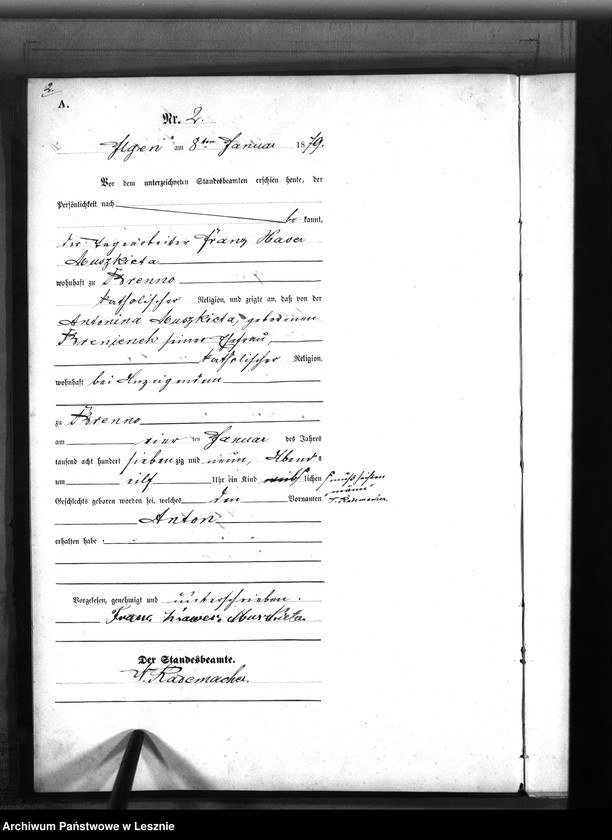 2.
A.
Nr. 2.
Ilgen am 8ten Januar 1879.
Vor dem unterzeichneten Standesbeamten erschien heute, der
Persönlichkeit nach
be kannt,
der Tagearbeiter Franz Xaver
Muszkieta
wohnhaft zu Brenno
katholischer Religion, und zeigte an, daß von der
Antonina Muszkieta, geborenen
seiner Ehefrau,
katholischer Religion,
wohnhaft bei
zu Brenno
am vier ten Januar des Jahres
tausend acht hundert sieben zig und neun, Abend s
um eilf Uhr ein Kind weib lichen
muß heißen
männ
F. Rademacher.
Geschlechts geboren worden sei, welches den Vornamen
Anton
erhalten habe.
Vorgelesen, genehmigt und unterschrieben.
Franc Muszkieta.
Der Standesbeamte.
F. Rademacher.
Archiwum Państwowe w Lesznie